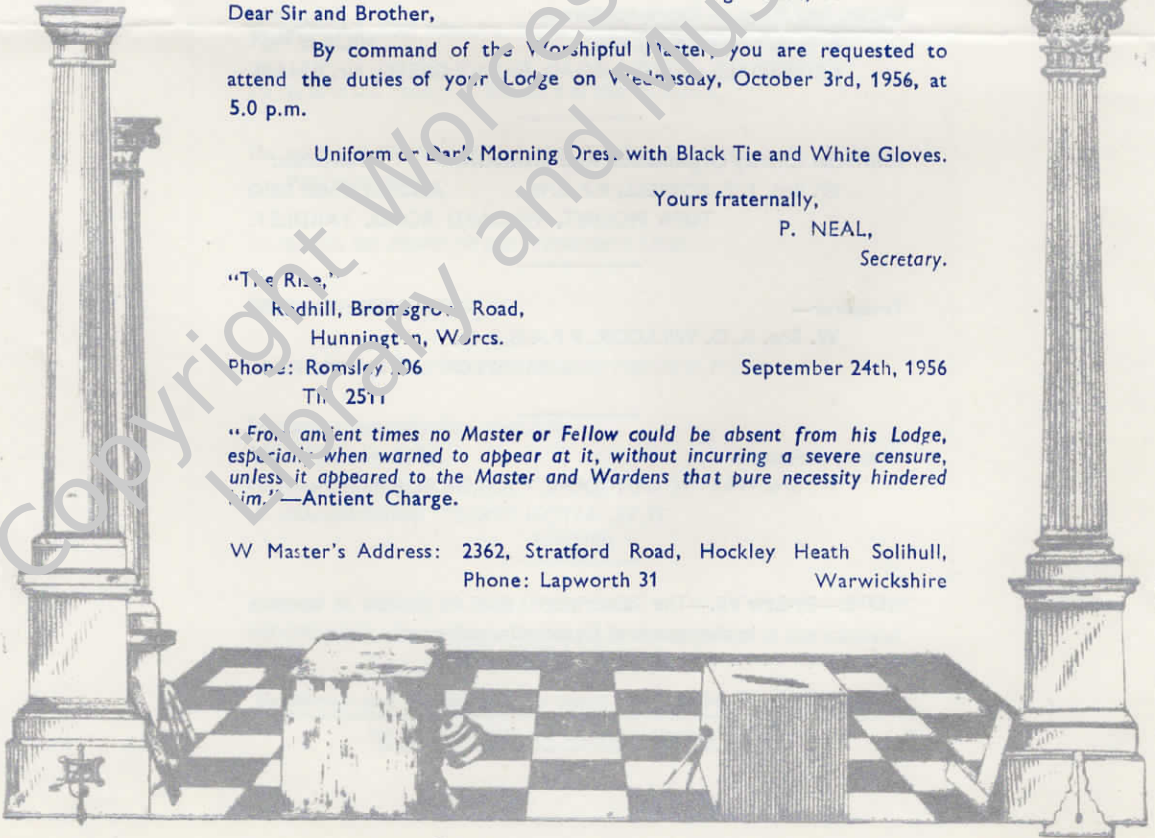 Dear Sir and Brother,
By command of the Worshipful Master, you are requested to
attend the duties of your Lodge on Wednesday, October 3rd, 1956, at
5.0 p.m.
Uniform or Dark Morning Dress with Black Tie and White Gloves.
Yours fraternally,
P. NEAL,
Secretary.
"The Rise,"
Redhill, Bromsgrove Road,
Hunnington, Worcs.
Phone: Romsley 206 September 24th, 1956
2511
"From antient times no Master or Fellow could be absent from his Lodge,
especially when warned to appear at it, without incurring a severe censure,
unless it appeared to the Master and Wardens that pure necessity hindered
him."—Antient Charge.
W Master's Address: 2362, Stratford Road, Hockley Heath Solihull,
Phone: Lapworth 31 Warwickshire
Copyright
Library and